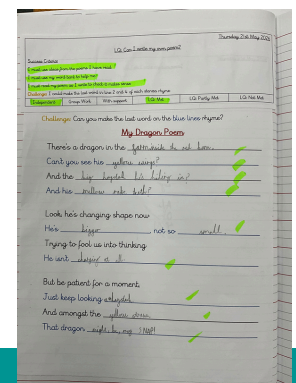 Thursday 21st May 2025
LQ: Can I write my own poem?
Success Criteria
I must use ideas from the poems I have read.
I must use my word bank to help me.
I must read my poem as I write to check it makes sense.
Challenge: I could make the last word in line 2 and 4 of each stanza rhyme.
Independent Group Work With support LQ: Met LQ: Partly Met LQ: Not Met
Challenge: Can you make the last word on the blue lines rhyme?
My Dragon Poem
There's a dragon in the the
Can't you see his yellow wings?
And the big haystack he's hiding in?
And his yellow teeth?
Look, he's changing shape now
He's bigger, not so small.
Trying to fool us into thinking
He isn't at all.
But be patient for a moment,
Just keep looking
And amongst the yellow straw
That dragon might